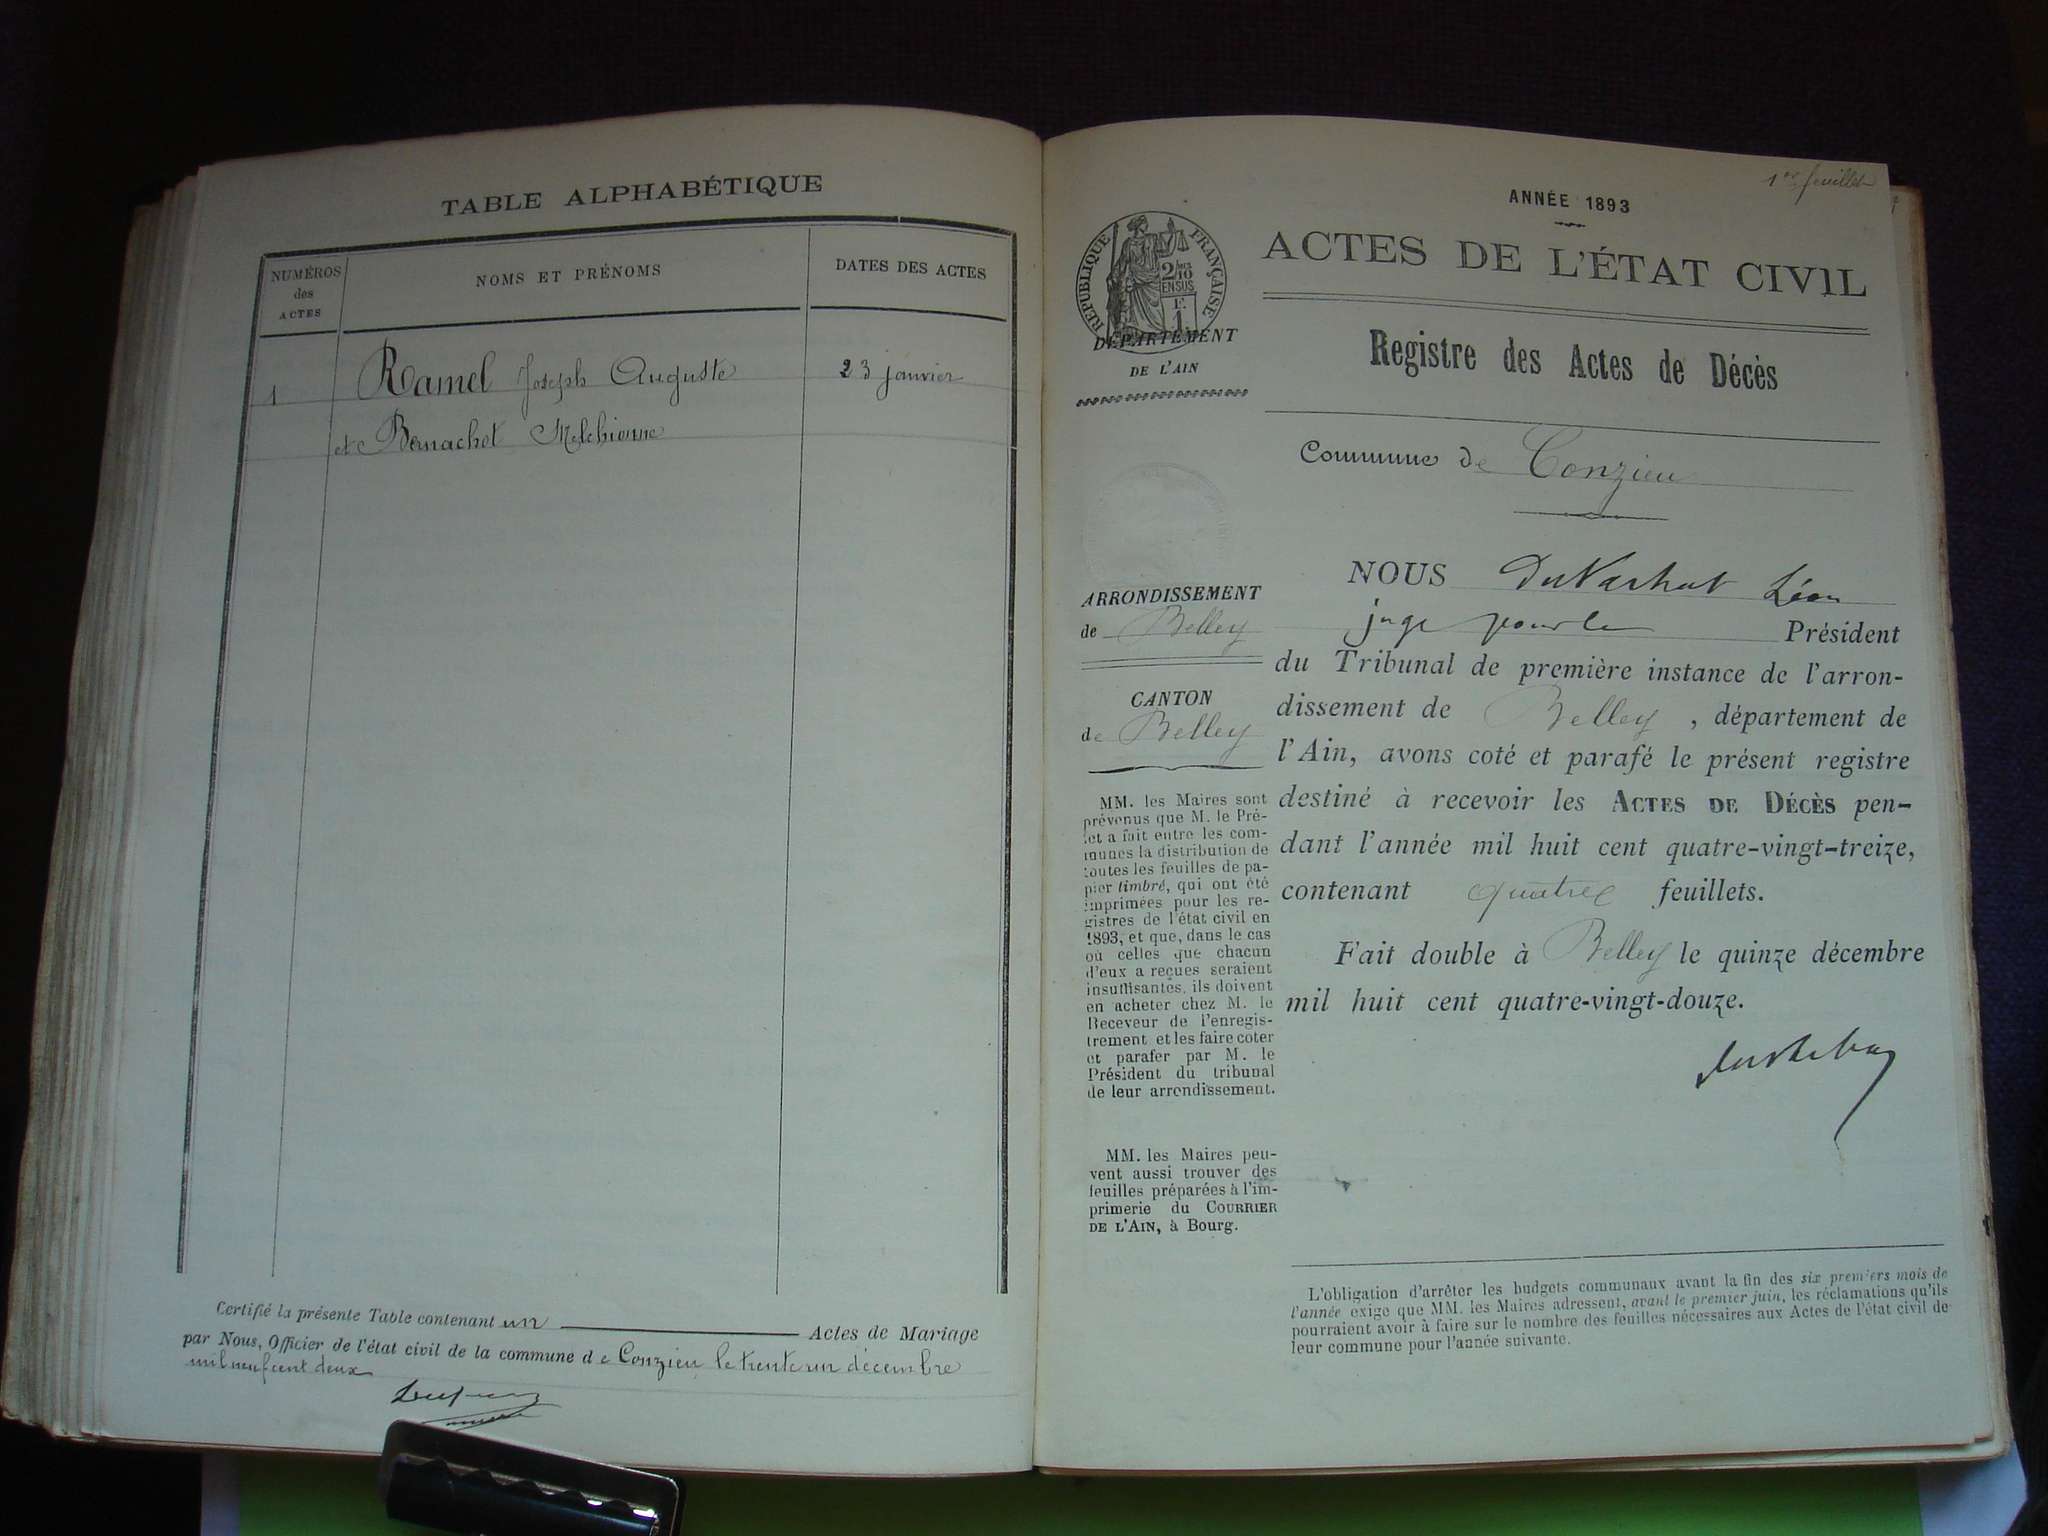 TABLE ALPHABÉTIQUE
NUMÉROS
des
ACTES
NOMS ET PRÉNOMS
DATES DES ACTES
1 Ramel Joseph Auguste 23 janvier
et Bernachot Melchionne
Certifié la présente Table contenant un Actes de Mariage
par Nous, Officier de l'état civil de la commune de Conzieu le trente un décembre
mil neuf cent deux
1er feuillet
ANNÉE 1893
ACTES DE L'ÉTAT CIVIL
RÉPUBLIQUE FRANÇAISE
2/10
EN SUS
F.
1
DÉPARTEMENT
DE L'AIN
Registre des Actes de Décès
Commune de Conzieu
ARRONDISSEMENT
de Belley
CANTON
de Belley
MM. les Maires sont
prévenus que M. le Pré-
fet a fait entre les com-
munes la distribution de
toutes les feuilles de pa-
pier timbré, qui ont été
imprimées pour les re-
gistres de l'état civil en
1893, et que, dans le cas
où celles que chacun
d'eux a reçues seraient
insuffisantes, ils doivent
en acheter chez M. le
Receveur de l'enregis-
trement et les faire coter
et parafer par M. le
Président du tribunal
de leur arrondissement.
MM. les Maires peu-
vent aussi trouver des
feuilles préparées à l'im-
primerie du COURRIER
DE L'AIN, à Bourg.
NOUS Léon
juge pour le Président
du Tribunal de première instance de l'arron-
dissement de Belley, département de
l'Ain, avons coté et parafé le présent registre
destiné à recevoir les ACTES DE DÉCÈS pen-
dant l'année mil huit cent quatre-vingt-treize,
contenant quatre feuillets.
Fait double à Belley le quinze décembre
mil huit cent quatre-vingt-douze.
L'obligation d'arrêter les budgets communaux avant la fin des six premiers mois de
l'année exige que MM. les Maires adressent, avant le premier juin, les réclamations qu'ils
pourraient avoir à faire sur le nombre des feuilles nécessaires aux Actes de l'état civil de
leur commune pour l'année suivante.